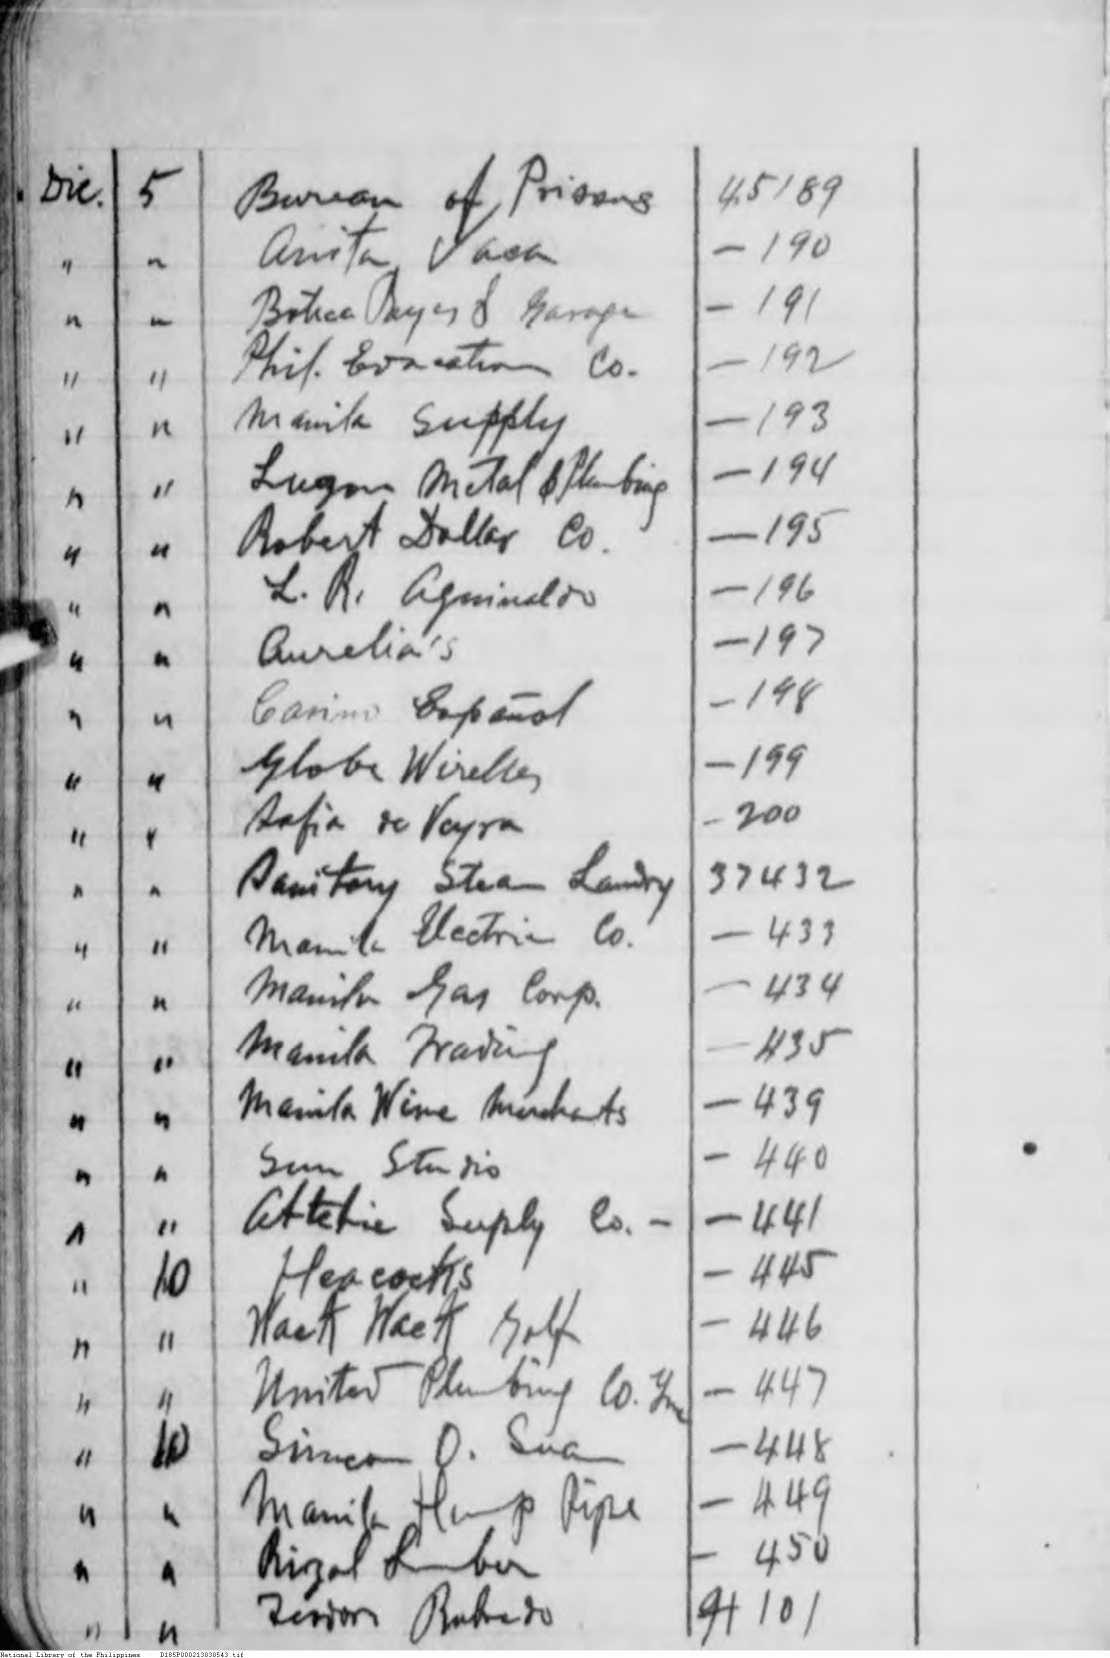 Dic. 5 Bureau of Prisons 45189
" " Anita Vasa — 190
" " Botica Reyes & Garage — 191
" " Phil. Education Co. — 192
" " Manila Supply — 193
" " Luzon Metal & Plumbing — 194
" " Robert Dollar Co. — 195
" " L. R. Aguinaldo — 196
" " Aurelia's — 197
" " Casino Español — 198
" " Globe Wireless — 199
" " Sofia de Veyra - 200
" " Sanitary Steam Landry 37432
" " Manila Electric Co. — 433
" " Manila Gas Corp. — 434
" " Manila Trading — 435
" " Manila Wine Merchants — 439
" " Sun Studio — 440
" " Supply Co. - — 441
" 10 Heacock's — 445
" " Wack Wack Golf — 446
" " United Plumbing Co. Inc — 447
" 10 Simeon O. — 448
" " Manila Hemp Pipe — 449
" " Rizal Lumber — 450
" " Teodoro 101
National Library of the Philippines D185P000213030543.tif